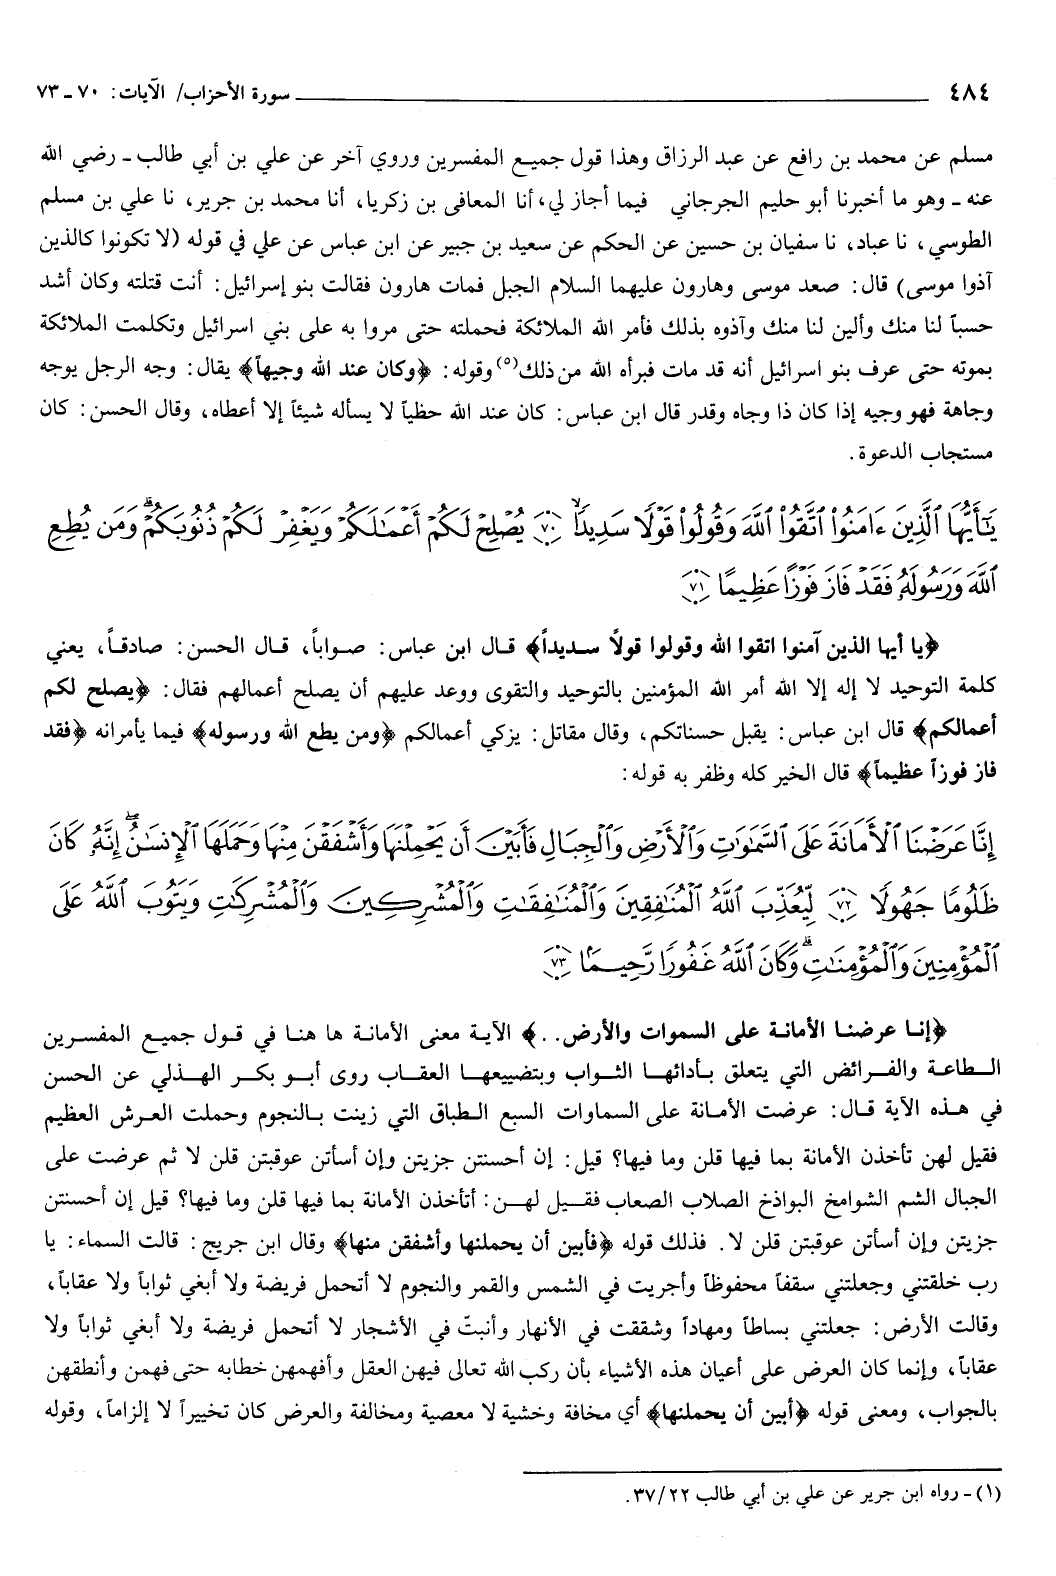 ٤٨٤ سورة الأحزاب/ الآيات: ٧٠ - ٧٣
مسلم عن محمد بن رافع عن عبد الرزاق وهذا قول جميع المفسرين وروي آخر عن علي بن أبي طالب - رضي الله
عنه - وهو ما أخبرنا أبو حليم الجرجاني فيما أجاز لي، أنا المعافى بن زكريا، أنا محمد بن جرير، نا علي بن مسلم
الطوسي، نا عباد، نا سفيان بن حسين عن الحكم عن سعيد بن جبير عن ابن عباس عن علي في قوله (لا تكونوا كالذين
آذوا موسى) قال: صعد موسى وهارون عليهما السلام الجبل فمات هارون فقالت بنو إسرائيل: أنت قتلته وكان أشد
حسباً لنا منك وألين لنا منك وآذوه بذلك فأمر الله الملائكة فحملته حتى مروا به على بني اسرائيل وتكلمت الملائكة
بموته حتى عرف بنو اسرائيل أنه قد مات فبرأه الله من ذلك(٥) وقوله: ﴿وكان عند الله وجيهاً﴾ يقال: وجه الرجل يوجه
وجاهة فهو وجيه إذا كان ذا وجاه وقدر قال ابن عباس: كان عند الله حظياً لا يسأله شيئاً إلا أعطاه، وقال الحسن: كان
مستجاب الدعوة.
يَٰٓأَيُّهَا ٱلَّذِينَ ءَامَنُوا۟ ٱتَّقُوا۟ ٱللَّهَ وَقُولُوا۟ قَوْلًا سَدِيدًا ﴿٧٠﴾ يُصْلِحْ لَكُمْ أَعْمَٰلَكُمْ وَيَغْفِرْ لَكُمْ ذُنُوبَكُمْ ۗ وَمَن يُطِعِ
ٱللَّهَ وَرَسُولَهُۥ فَقَدْ فَازَ فَوْزًا عَظِيمًا ﴿٧١﴾
﴿يا أيها الذين آمنوا اتقوا الله وقولوا قولاً سديداً﴾ قال ابن عباس: صواباً، قال الحسن: صادقاً، يعني
كلمة التوحيد لا إله إلا الله أمر الله المؤمنين بالتوحيد والتقوى ووعد عليهم أن يصلح أعمالهم فقال: ﴿يصلح لكم
أعمالكم﴾ قال ابن عباس: يقبل حسناتكم، وقال مقاتل: يزكي أعمالكم ﴿ومن يطع الله ورسوله﴾ فيما يأمرانه ﴿فقد
فاز فوزاً عظيماً﴾ قال الخير كله وظفر به قوله:
إِنَّا عَرَضْنَا ٱلْأَمَانَةَ عَلَى ٱلسَّمَٰوَٰتِ وَٱلْأَرْضِ وَٱلْجِبَالِ فَأَبَيْنَ أَن يَحْمِلْنَهَا وَأَشْفَقْنَ مِنْهَا وَحَمَلَهَا ٱلْإِنسَٰنُ ۖ إِنَّهُۥ كَانَ
ظَلُومًا جَهُولًا ﴿٧٢﴾ لِّيُعَذِّبَ ٱللَّهُ ٱلْمُنَٰفِقِينَ وَٱلْمُنَٰفِقَٰتِ وَٱلْمُشْرِكِينَ وَٱلْمُشْرِكَٰتِ وَيَتُوبَ ٱللَّهُ عَلَى
ٱلْمُؤْمِنِينَ وَٱلْمُؤْمِنَٰتِ ۗ وَكَانَ ٱللَّهُ غَفُورًا رَّحِيمًا ﴿٧٣﴾
﴿إنا عرضنا الأمانة على السموات والأرض..﴾ الآية معنى الأمانة ها هنا في قول جميع المفسرين
الطاعة والفرائض التي يتعلق بأدائها الثواب وبتضييعها العقاب روى أبو بكر الهذلي عن الحسن
في هذه الآية قال: عرضت الأمانة على السماوات السبع الطباق التي زينت بالنجوم وحملت العرش العظيم
فقيل لهن تأخذن الأمانة بما فيها قلن وما فيها؟ قيل: إن أحسنتن جزيتن وإن أسأتن عوقبتن قلن لا ثم عرضت على
الجبال الشم الشوامخ البواذخ الصلاب الصعاب فقيل لهن: أتأخذن الأمانة بما فيها قلن وما فيها؟ قيل إن أحسنتن
جزيتن وإن أسأتن عوقبتن قلن لا. فذلك قوله ﴿فأبين أن يحملنها وأشفقن منها﴾ وقال ابن جريج: قالت السماء: يا
رب خلقتني وجعلتني سقفاً محفوظاً وأجريت في الشمس والقمر والنجوم لا أتحمل فريضة ولا أبغي ثواباً ولا عقاباً،
وقالت الأرض: جعلتني بساطاً ومهاداً وشققت في الأنهار وأنبتّ في الأشجار لا أتحمل فريضة ولا أبغي ثواباً ولا
عقاباً، وإنما كان العرض على أعيان هذه الأشياء بأن ركب الله تعالى فيهن العقل وأفهمهن خطابه حتى فهمن وأنطقهن
بالجواب، ومعنى قوله ﴿أبين أن يحملنها﴾ أي مخافة وخشية لا معصية ومخالفة والعرض كان تخييراً لا إلزاماً، وقوله
(١) - رواه ابن جرير عن علي بن أبي طالب ٣٧/٢٢.